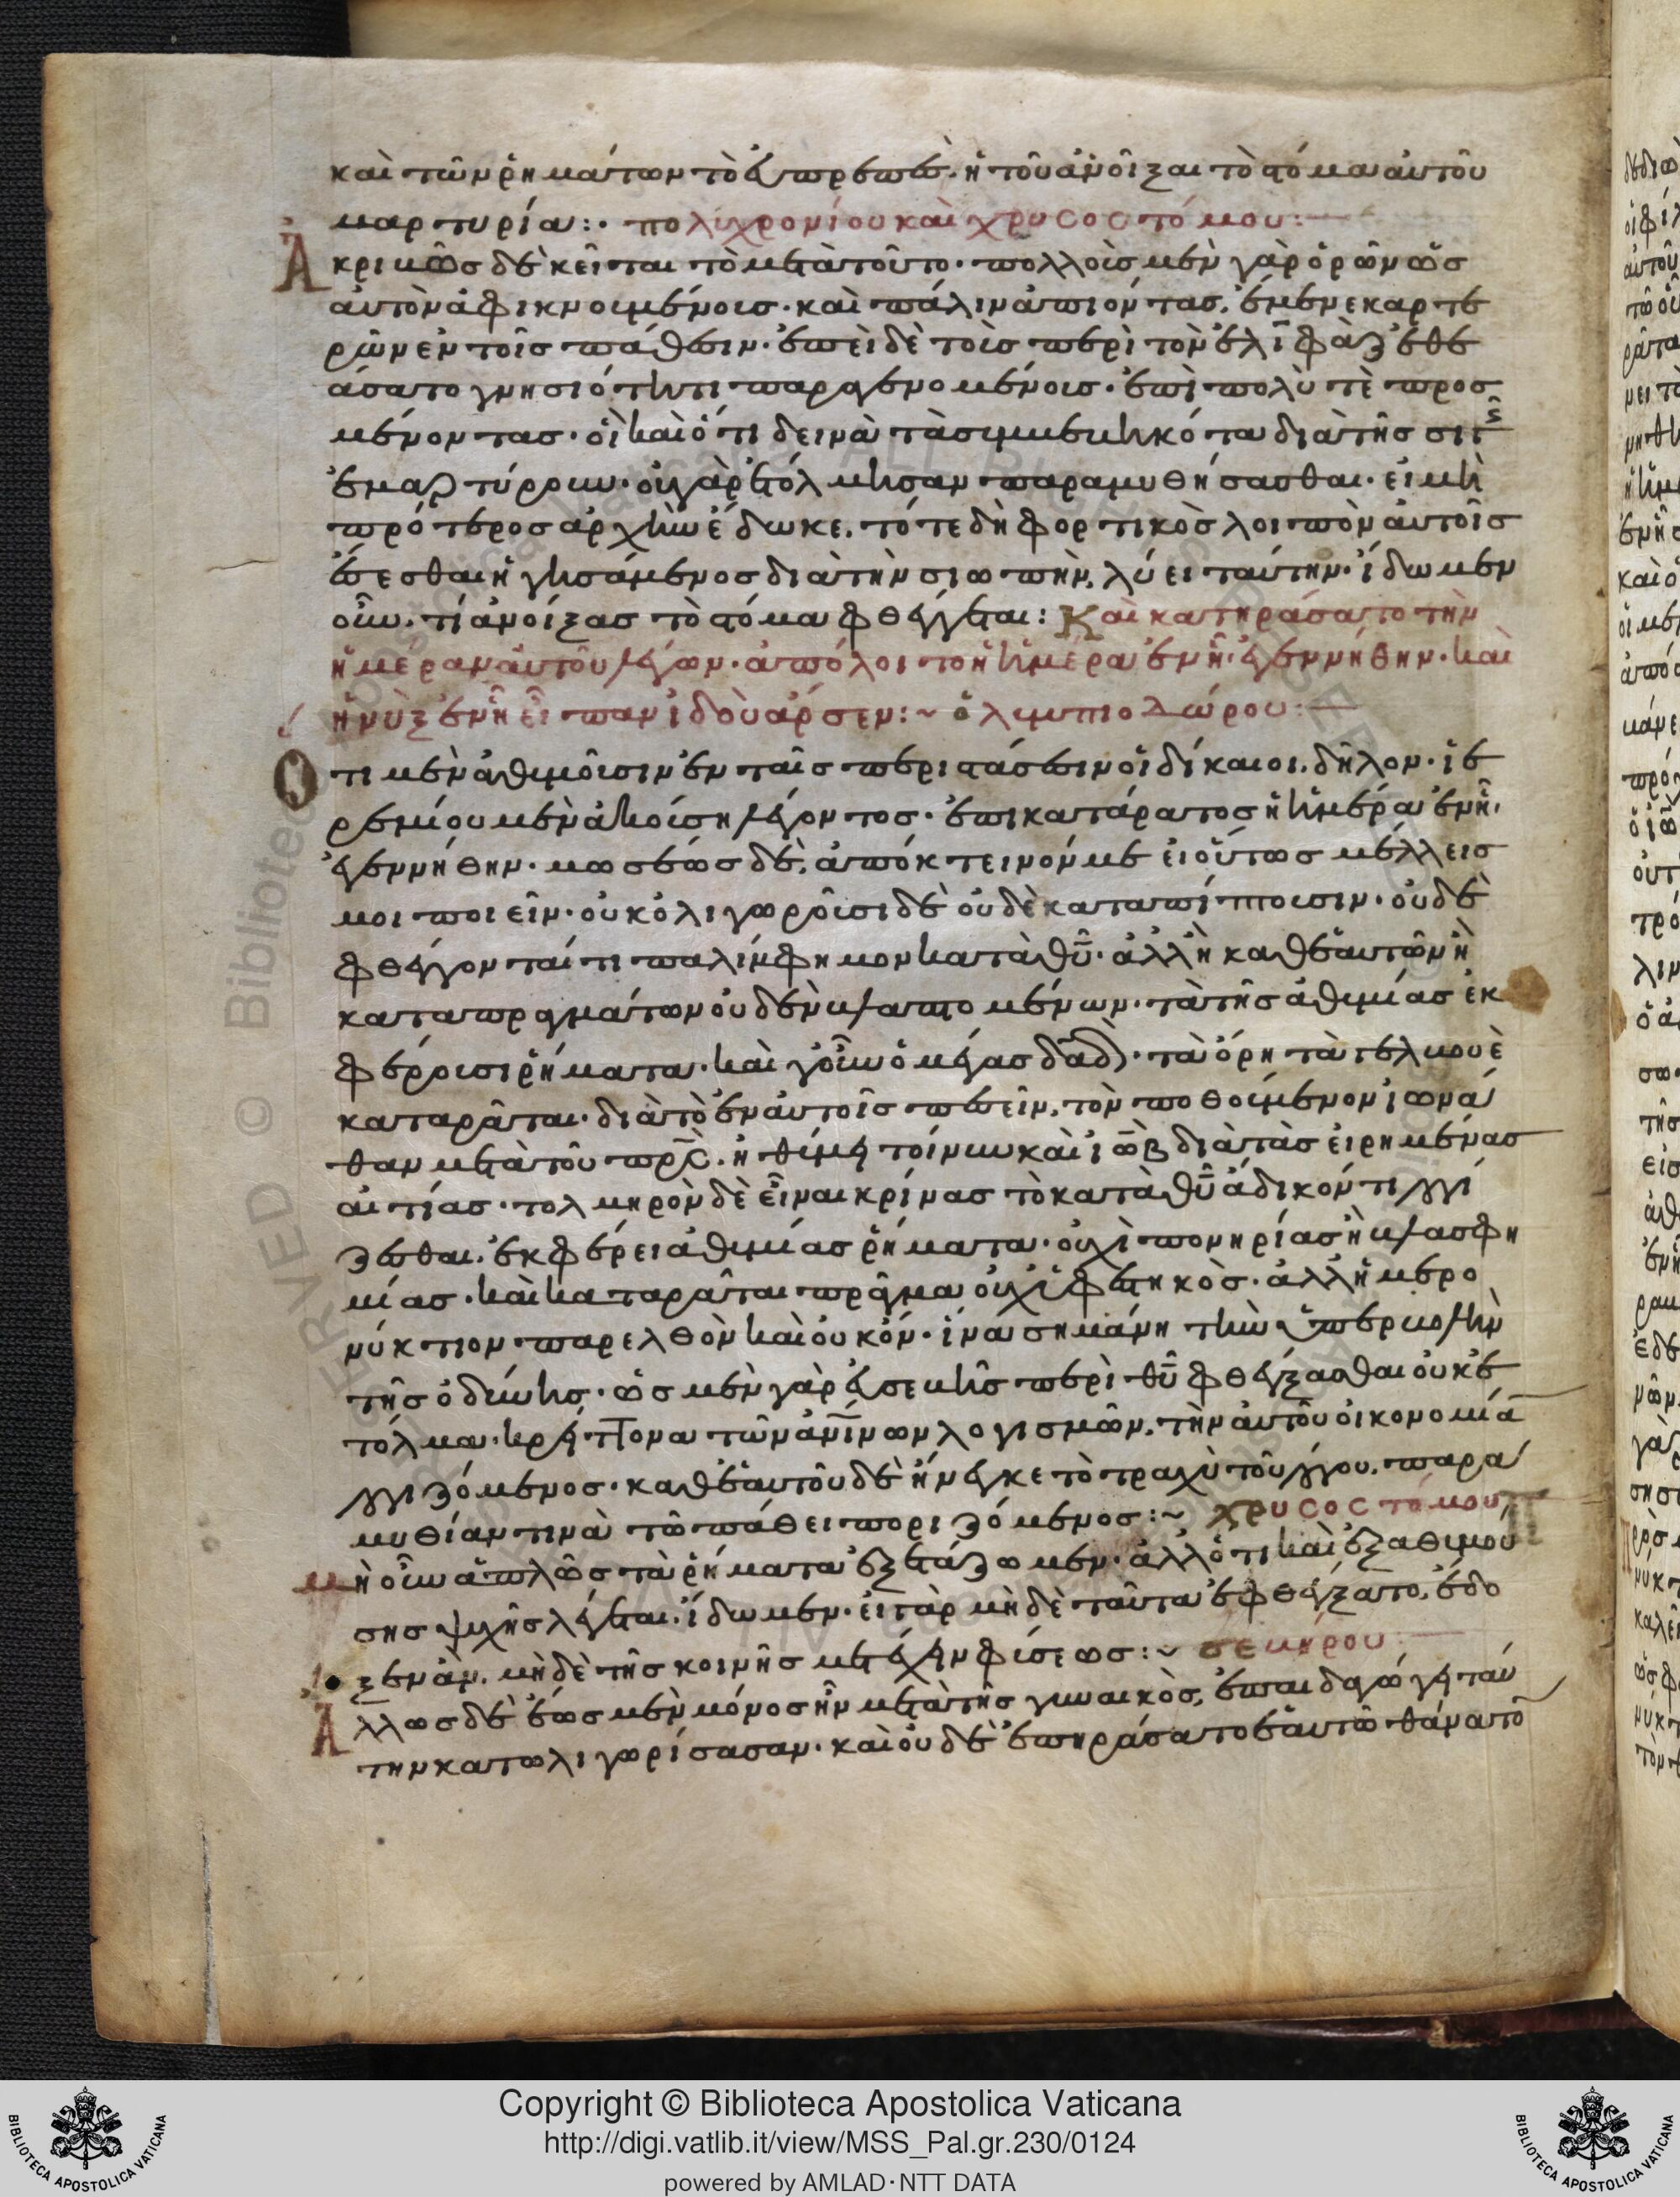 καὶ τῶν ῥημάτων τὸ εὐπρεπὲς. ἡ τοῦ ἀνοῖξαι τὸ στόμα αὐτοῦ
μαρτυρία: πολυχρονίου καὶ χρυσοστόμου:
Ακριβῶς δὲ κεῖται τὸ μετὰ τοῦτο. πολλοῖς μὲν γὰρ ὁρῶν ὡς
αὐτὸν ἀφικνουμένοις. καὶ πάλιν ἀπιόντας. ἐνεκαρτέ
ρων ἐν τοῖς πάθεσιν. ἐπεὶ δὲ τοῖς περὶ τὸν ἐλιφὰζ ἐθε
άσατο γνησιότητι παραγενομένοις. ἐπὶ πολὺ τὲ προσ
μένοντας. οἳ καὶ ὅτι δεινὰ τὰ συμβεβηκότα διὰ τῆς σιγῆς
ἐμαρτύρουν. οὐ γὰρ ἐτόλμησαν παραμυθήσασθαι. εἰ μὴ
πρότερος ἀρχὴν ἔδωκε. τότε δὴ φορτικὸς λοιπὸν αὐτοῖς
ἔσεσθαι ἡγησάμενος διὰ τὴν σιωπὴν, λύει ταύτην. ἴδωμεν
οὖν. τί ἀνοίξας τὸ στόμα φθέγγεται: Καὶ κατηράσατο τὴν
ἡμέραν αὐτοῦ λέγων. ἀπόλοιτο ἡ ἡμέρα ἐν ᾗ ἐγεννήθην. καὶ
ἡ νὺξ ἐν ᾗ εἶπαν ἰδοὺ ἄρσεν: ~ ὀλυμπιοδώρου:
Οτι μὲν ἀθυμοῦσιν ἐν ταῖς περιστάσεσιν οἱ δίκαιοι. δῆλον. ἱε
ρεμίου μὲν ἀκούσῃ λέγοντος. ἐπικατάρατος ἡ ἡμέρα ἐν ᾗ
ἐγεννήθην. μωσέως δὲ, ἀπόκτεινόν με εἰ οὕτως μέλλεις
μοι ποιεῖν. οὐκ ὀλιγωροῦσι δὲ οὐδὲ καταπίπτουσιν. οὐδὲ
φθέγγονταί τι παλίμφημον κατὰ θῦ. ἀλλ' ἢ καθ' ἑαυτῶν ἢ
κατὰ πραγμάτων οὐδὲν βλαπτομένων. τὰ τῆς ἀθυμίας ἐκ
φέρουσι ῥήματα. καὶ γοῦν ὁ μέγας δαδ. τὰ ὄρη τὰ γελβουὲ
καταρᾶται. διὰ τὸ ἐν αὐτοῖς πεσεῖν, τὸν ποθούμενον ἰωνά
θαν μετὰ τοῦ πρς. ἠθύμει τοίνυν καὶ ἰὼβ διὰ τὰς εἰρημένας
αἰτίας. τολμηρὸν δὲ εἶναι κρίνας τὸ κατὰ θῦ ἄδικόν τι λογί
ζεσθαι. ἐκφέρει ἀθυμίας ῥήματα. οὐχὶ πονηρίας ἢ βλασφη
μίας. καὶ καταρᾶται πρᾶγμα οὐχὶ ὑφεστηκὸς. ἀλλ' ἡμερο
νύκτιον παρελθὸν καὶ οὐκ ὄν. ἵνα σημάνῃ τὴν ὑπερβολὴν
τῆς ὀδύνης. ὡς μὲν γὰρ εὐσεβὴς περὶ θῦ φθέγξασθαι οὐκ ἐ
τόλμα. κρείττονα τῶν ἀνίνων λογισμῶν, τὴν αὐτοῦ οἰκονομία
λογιζόμενος. καθ' ἑαυτοῦ δὲ ἤνεγκε τὸ τραχὺ τοῦ λόγου. παρα
μυθίαν τινὰ τῶ πάθει ποριζόμενος: ~ χρυσοστόμου
Μὴ οὖν ἁπλῶς τὰ ῥήματα ἐξετάζωμεν. ἀλλ' ὅτι καὶ ἐξ ἀθυμού
σης ψυχῆς λέγεται. ἴδωμεν. εἰ γὰρ μὴ δὲ ταῦτα ἐφθέγξατο, ἔδο
ξεν ἂν. μὴ δὲ τῆς κοινῆς μετέχειν φύσεως: ~ σευήρου
Αλλως δὲ ἕως μὲν μόνος ἦν μετὰ τῆς γυναικὸς, ἐπαιδαγώγει ταύ
την κατολιγωρίσασαν. καὶ οὐδὲ ἐπηράσατο ἑαυτῶ θάνατο
Copyright © Biblioteca Apostolica Vaticana
http://digi.vatlib.it/view/MSS_Pal.gr.230/0124
powered by AMLAD·NTT DATA